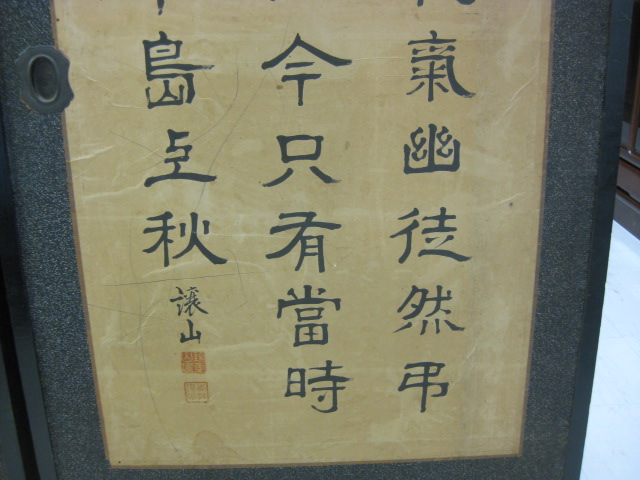 氣幽徒然弔
今只有當時
島之秋
讓山